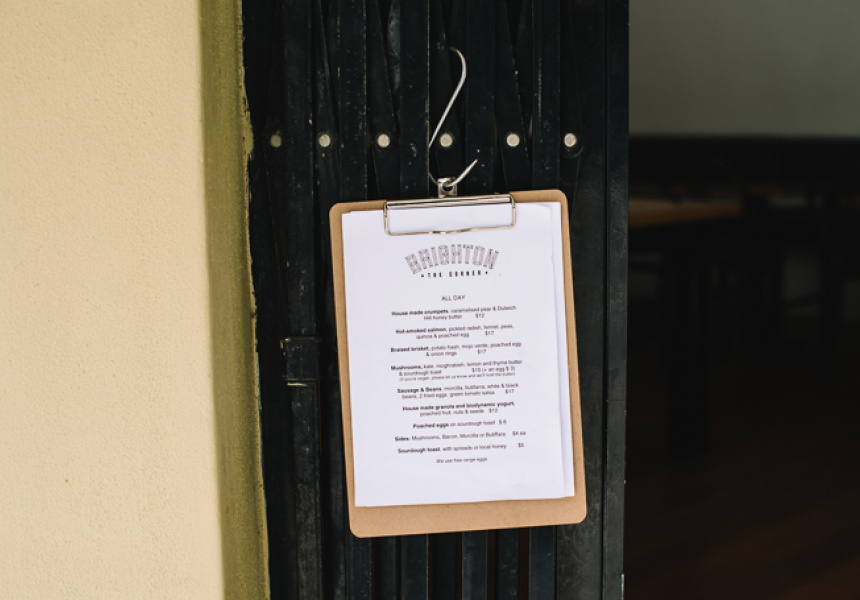 BRIGHTON
THE CORNER
ALL DAY
House made crumpets, caramelised pear & Dutench
Hill honey butter $12
Hot-smoked salmon, pickled radish, fennel, peas,
quinoa & poached egg $17
Braised brisket, potato hash, mojo verde, poached egg
& onion rings $17
Mushrooms, kale, moghrabieh, lemon and thyme butter
& sourdough toast $15 (+ an egg $ 3)
(if you're vegan, please let us know and we'll hold the butter)
Sausage & Beans, morcilla, butifarra, white & black
beans, 2 fried eggs, green tomato salsa $17
House made granola and biodynamic yogurt,
poached fruit, nuts & seeds $12
Poached eggs on sourdough toast $ 8
Sides: Mushrooms, Bacon, Morcilla or Butifarra $4 ea
Sourdough toast, with spreads or local honey $5
We use free range eggs